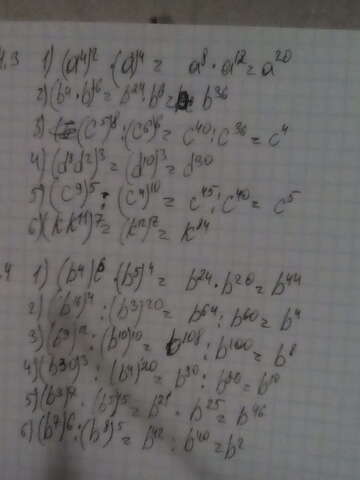 4.3 1) (a⁴)² · (a³)⁴ = a⁸ · a¹² = a²⁰
2) (b⁴ · b)⁶ = b²⁴ · b⁶ = b³⁶
3) (c⁵)⁸ : (c⁶)⁶ = c⁴⁰ : c³⁶ = c⁴
4) (d⁸d²)³ = (d¹⁰)³ = d³⁰
5) (c⁹)⁵ : (c⁴)¹⁰ = c⁴⁵ : c⁴⁰ = c⁵
6) (k k¹¹)⁷ = (k¹²)⁷ = k⁸⁴
.4 1) (b⁴)⁶ · (b⁵)⁴ = b²⁴ · b²⁰ = b⁴⁴
2) (b¹⁶)⁴ : (b³)²⁰ = b⁶⁴ : b⁶⁰ = b⁴
3) (b⁹)¹² : (b¹⁰)¹⁰ = b¹⁰⁸ : b¹⁰⁰ = b⁸
4) (b³⁰)³ : (b⁴)²⁰ = b⁹⁰ : b⁸⁰ = b¹⁰
5) (b³)⁷ · (b⁵)⁵ = b²¹ · b²⁵ = b⁴⁶
6) (b⁷)⁶ : (b⁸)⁵ = b⁴² : b⁴⁰ = b²